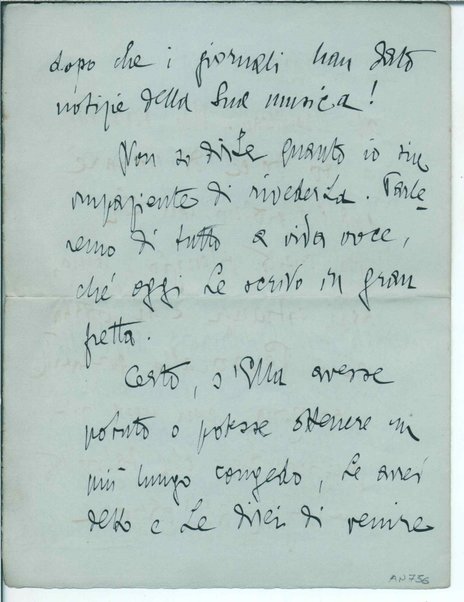 dopo che i giornali han dato
notizie della Sua musica!
Non so dirLe quanto io sia
impaziente di rivederLa. Parle=
remo di tutto a viva voce,
ché oggi Le scrivo in gran
fretta.
Certo, s'Ella avesse
potuto o potesse ottenere un
più lungo congedo, Le avrei
detto e Le direi di venire
AN756